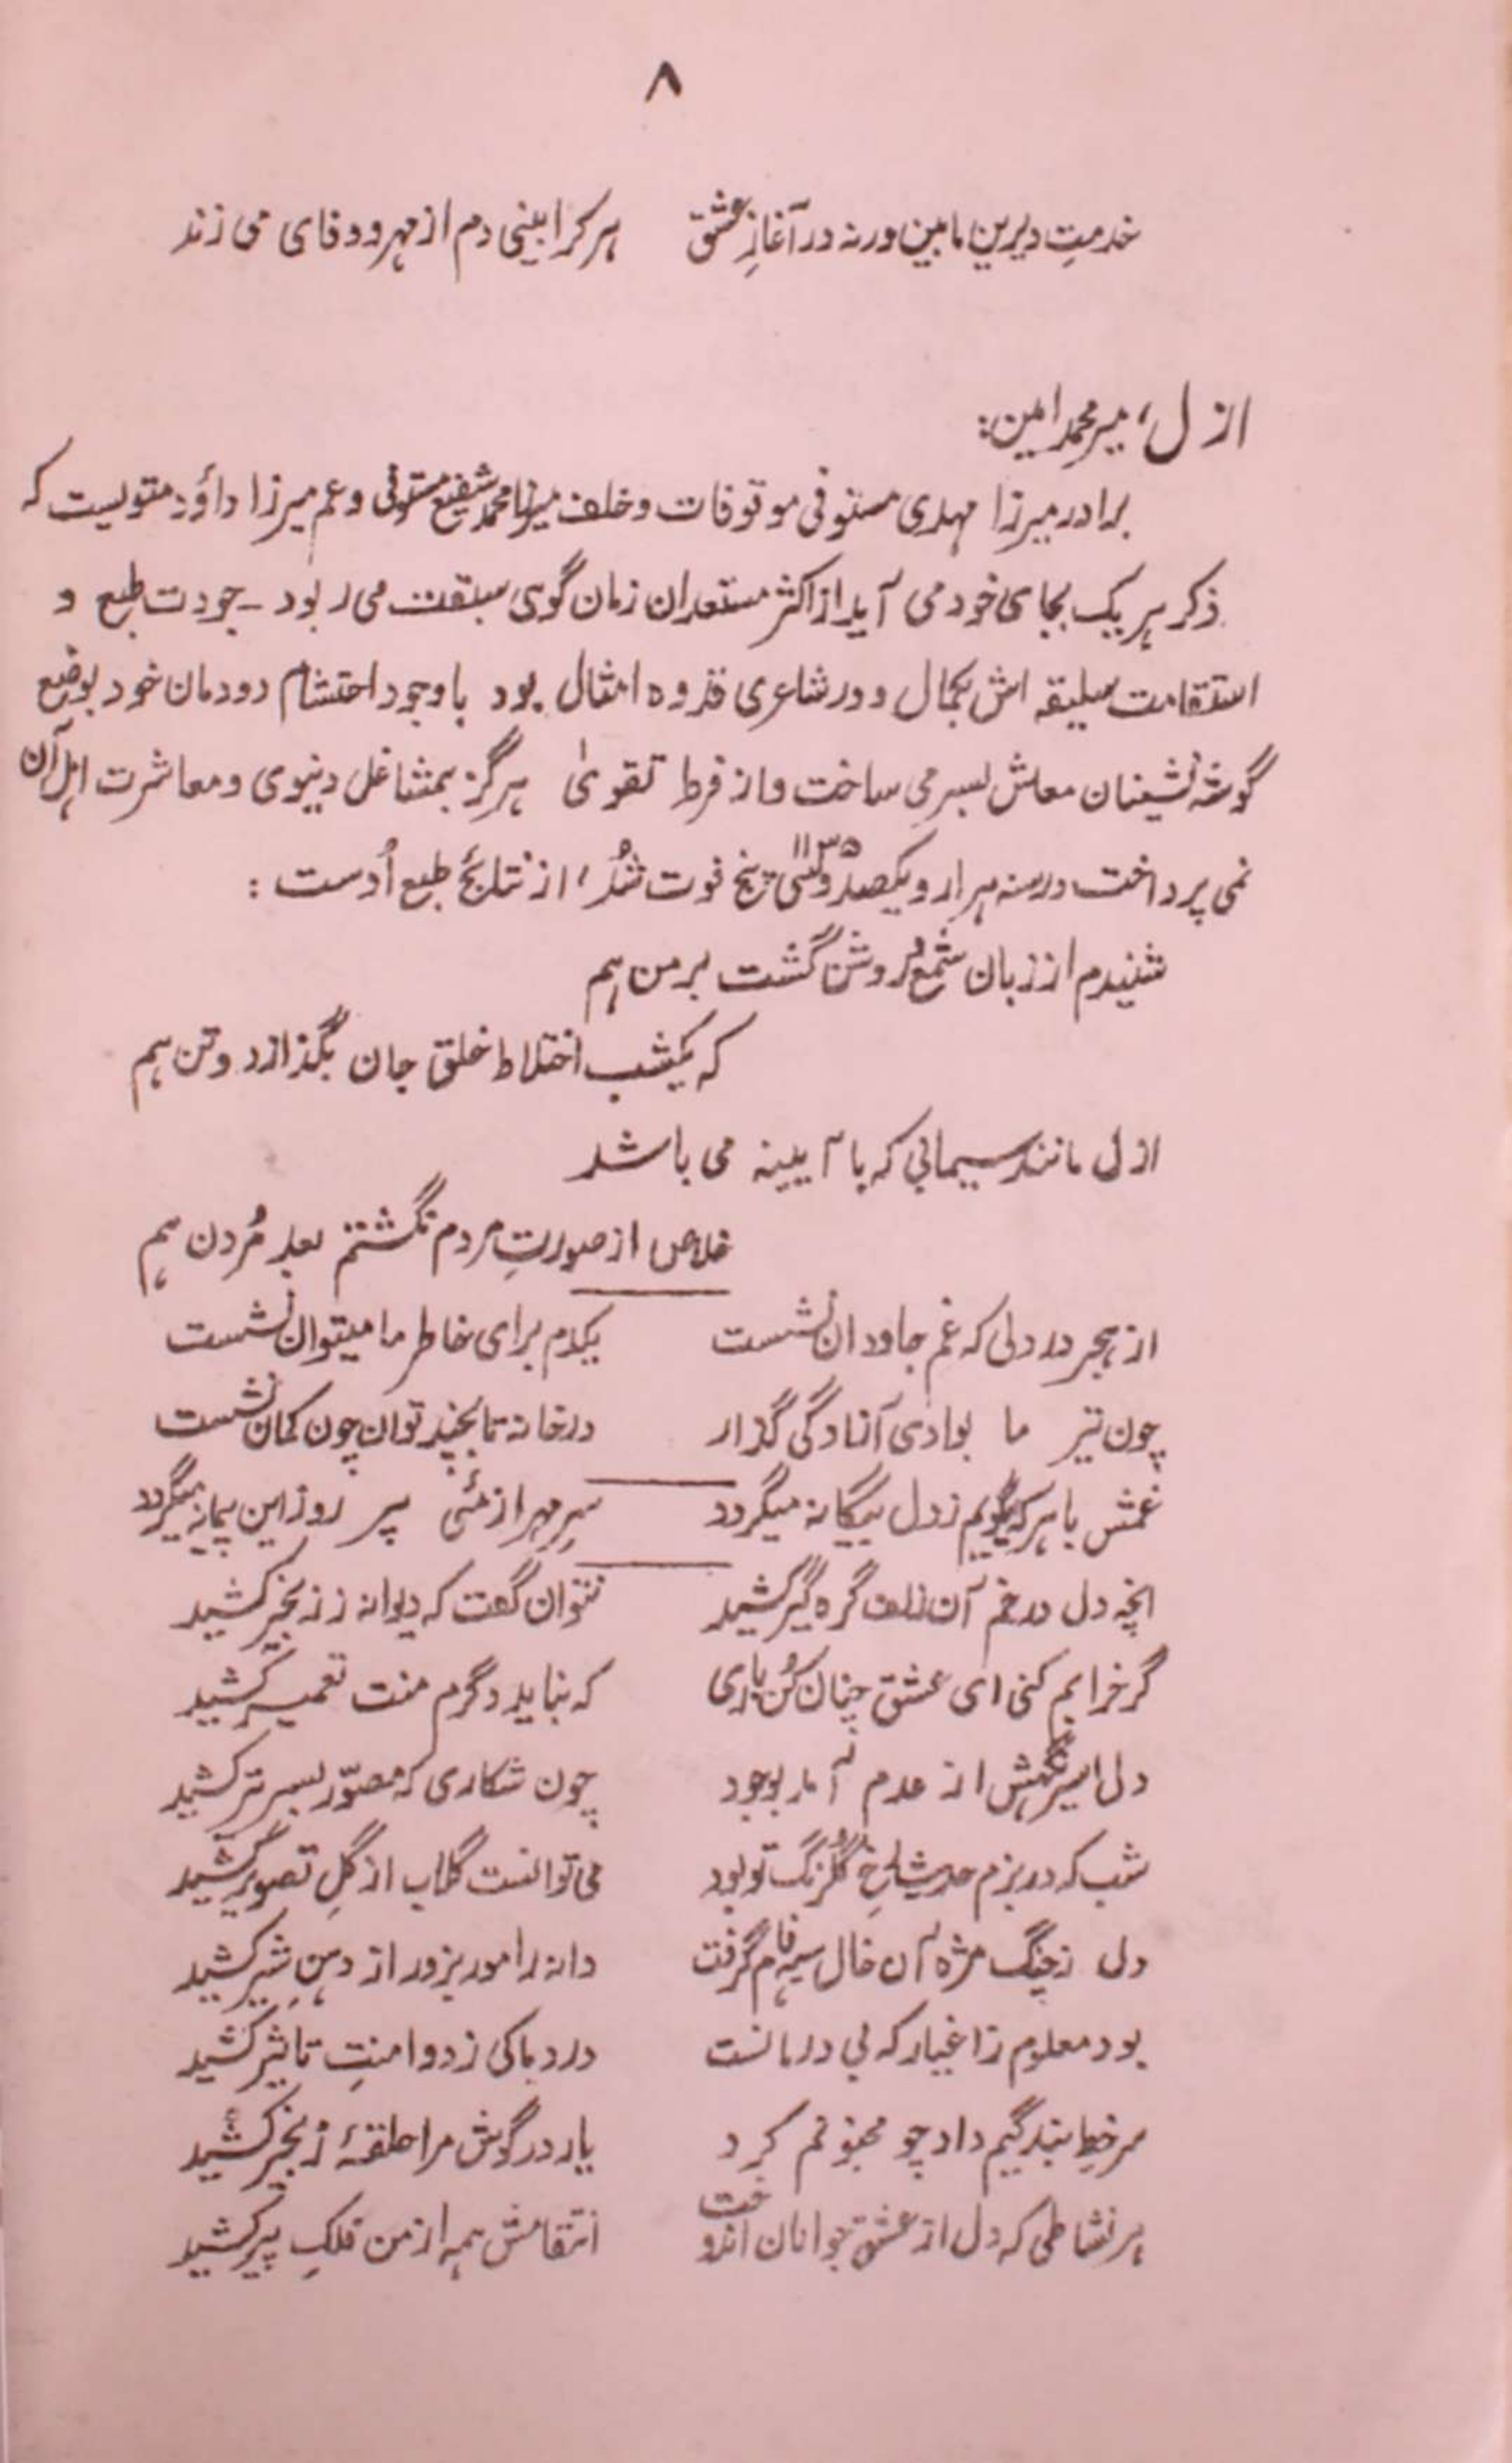 ۸
خدمتِ دیرین ما بین ورنہ در آغازِ عشق هر کرا بینی دم از مهر و وفای می زند
ازل، میر محمد امین:
برادر میرزا مهدی مستوفی موقوفات و خلف میرزا محمد شفیع مستوفی و عم میرزا داؤد متولیست کہ
ذکر ہر یک بجای خود می آید از اکثر مستعدان زمان گوی سبقت می ربود ـ جودت طبع و
استقامت سلیقہ اش بکمال و در شاعری قدوہ امثال بود با وجود احتشام دودمان خود بوضع
گوشہ نشینان معاش بسر می ساخت و از فرط تقویٰ ہرگز بمشاغل دنیوی و معاشرت اہل آن
نمی پرداخت در سنہ ہزار و یکصد و سی پنج ۱۱۳۵ فوت شُد، از نتائج طبع اُوست :
شنیدم از زبان شمع و روشن گشت بر من ہم
کہ یکشب اختلاط خلق جان بگدازد و تن ہم
ازل مانند سیمابی کہ با آیینہ می باشد
خلاص از صورتِ مردم نگشتم بعد مُردن ہم
از ہجر در دلی کہ غم جاودان نشست یکدم برای خاطر ما میتوان نشست
چون تیر ما بوادی آزادگی گذار در خانہ تا بچند توان چون کمان نشست
غمش با ہر کہ گویم ز دل بیگانہ میگردد سرِ مہر از مئی پر روز این پیمانہ میگردد
انچہ دل در خم آن زلف گرہ گیر کشید نتوان گفت کہ دیوانہ ز زنجیر کشید
گر خرابم کنی ای عشق چنان کُن باری کہ نباید دگرم منت تعمیر کشید
دل اسیر نگہش از عدم آمد بوجود چون شکاری کہ مصوّر بسر تیر کشید
شب کہ در بزم حدیث رخِ گُلرنگ تو بود می توانست گلاب از گلِ تصویر کشید
دل ز چنگ مژہ آن خال سیہ فام گرفت دانہ را مور بزور از دہنِ شیر کشید
بود معلوم ز اغیار کہ بی درمانست درد ما کی ز دوا منتِ تاثیر کشید
سر خطِ بندگیم داد چو مجنونم کرد یار در گوش مرا حلقۂ زنجیر کشید
ہر نشاطی کہ دل از عشق جوانان اندوخت انتقامش ہمہ از من فلکِ پیر کشید